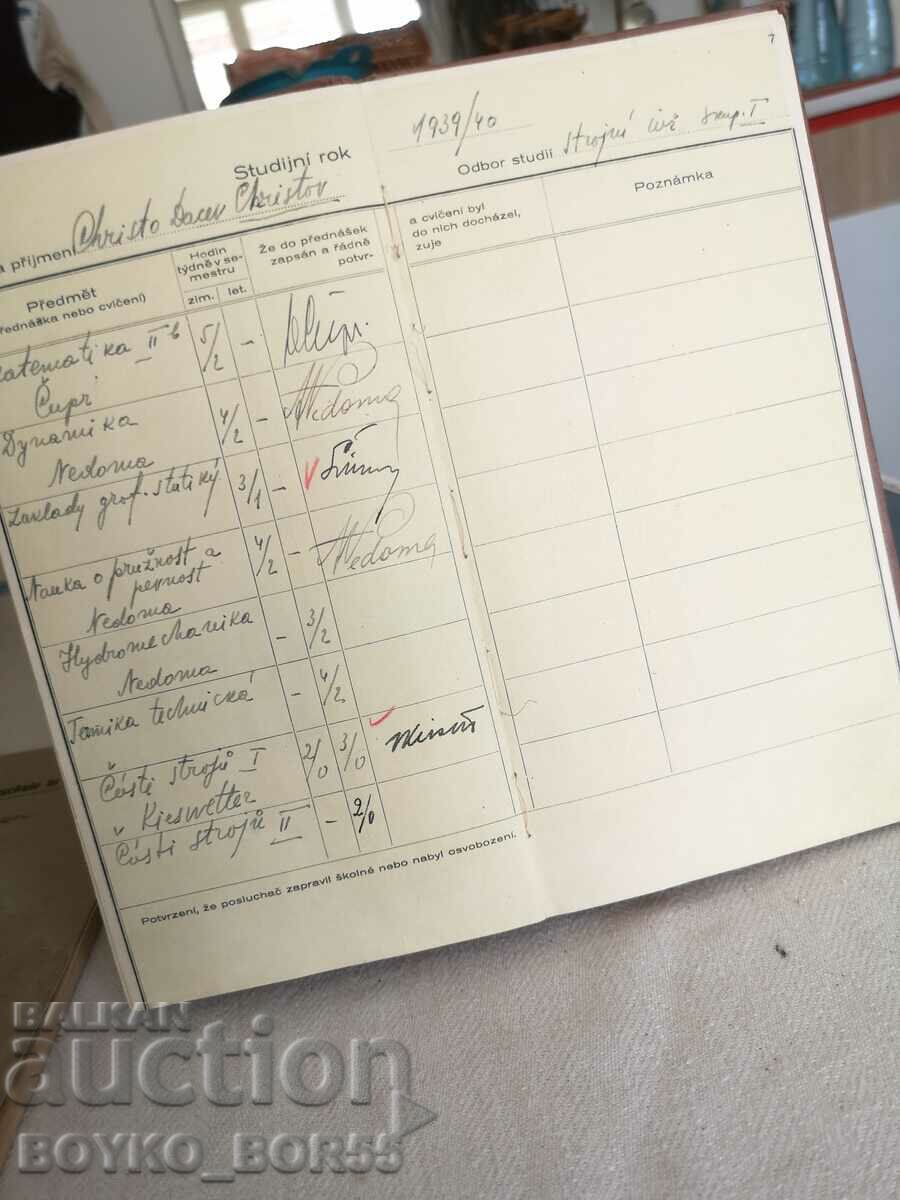 7
Studijní rok
1939/40
Odbor studií strojní inž skup. I
a příjmení Christo Dacev Christov
Předmět
(přednáška nebo cvičení)
Hodin
týdně v se-
mestru
zim. let.
Že do přednášek
zapsán a řádně
potvr-
a cvičení byl
do nich docházel,
zuje
Poznámka
Matematika II b 5/2 -
Čupr
Dynamika 4/2 - Nedoma
Nedoma
Základy graf. statiky 3/1 -
Nauka o pružnost a 4/2 - Nedoma
pevnost
Nedoma
Hydromechanika - 3/2
Nedoma
technická - 4/2
Části strojů I 2/0 3/0
" Kieswetter
Části strojů II - 2/0
Potvrzení, že posluchač zapravil školné nebo nabyl osvobození.
BALKAN
auction
BOYKO_BOR55